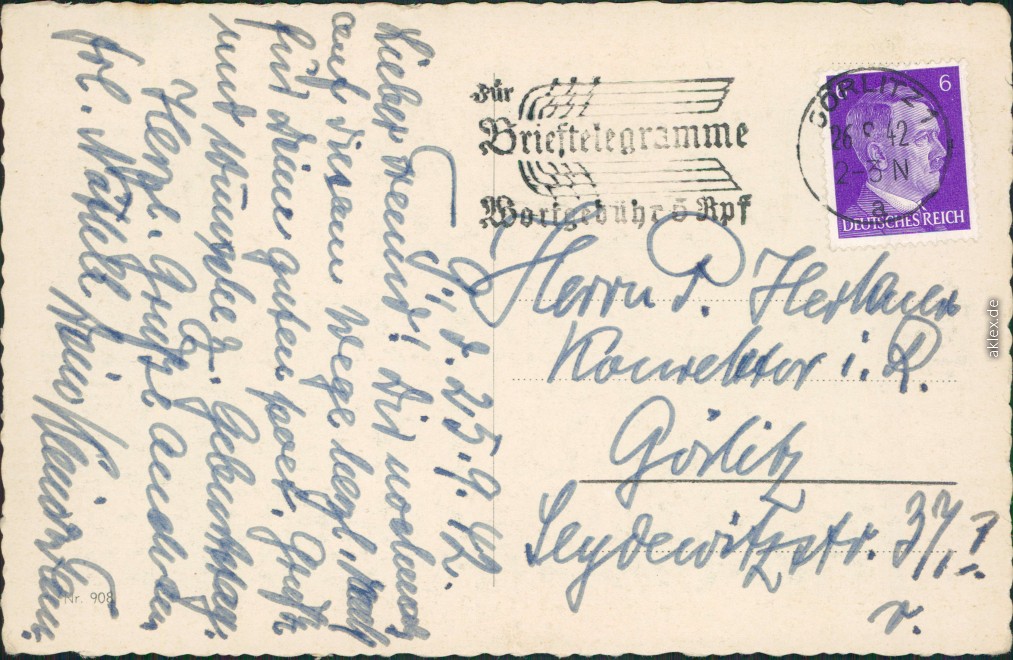 G., d. 25.9.42.
Lieber Freund! Dir nochmals
auf diesem Wege herzl. Dank
für deine guten poet. Grüße
und Wünsche z. Geburtstag.
Herzl. Grüße auch an
Frl.
Für
Brieftelegramme
Wortgebühr 5 Rpf
GÖRLITZ 1
26.9.42
2-3 N
a
6
DEUTSCHES REICH
Herrn P.
Konrektor i. R.
Görlitz
Seydewitzstr. 37I.
r.
Nr. 908
aklex.de